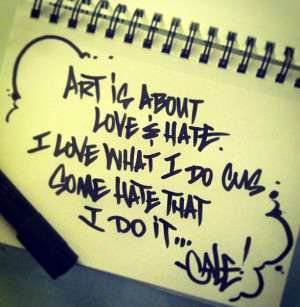 ART IS ABOUT
LOVE & HATE.
I LOVE WHAT I DO CUS
SOME HATE THAT
I DO IT...